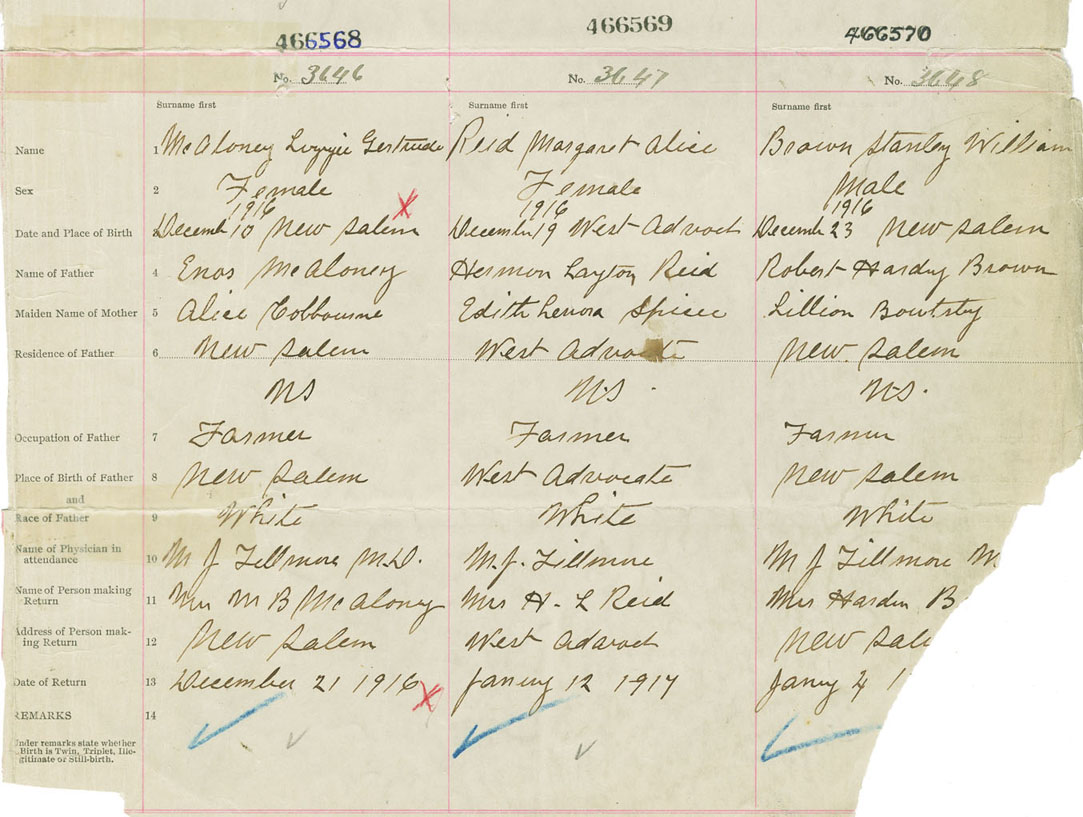 466568 466569 466570
No. 3646 No. 3647 No. 3648
Surname first Surname first Surname first
Name 1 McAloney Gertrude Reid Margaret Alice Brown Stanley William
Sex 2 Female Female Male
1916 1916 1916
Date and Place of Birth 3 Decemb 10 New Salem December 19 West Advoct Decemb 23 New Salem
Name of Father 4 Enos McAloney Hermon Layton Reid Robert Hardy Brown
Maiden Name of Mother 5 Alice Colbourne Edith Lenora Spicer Lillion
Residence of Father 6 New Salem West Advocate New Salem
NS N.S. N.S.
Occupation of Father 7 Farmer Farmer Farmer
Place of Birth of Father 8 New Salem West Advocate New Salem
and
Race of Father 9 White White White
Name of Physician in
attendance 10 M J Fillmore M.D. M.J. Fillmore M J Fillmore M.
Name of Person making
Return 11 Mrs M B McAloney Mrs H. L Reid Mrs Harden B
Address of Person mak-
ing Return 12 New Salem West Advoct New Sale
Date of Return 13 December 21 1916 Januy 12 1917 Januy 4 1
REMARKS 14
Under remarks state whether
Birth is Twin, Triplet, Ille-
gitimate or Still-birth.